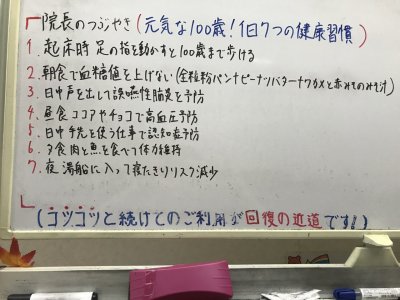 院長のつぶやき(元気な100歳!1日7つの健康習慣)
1. 起床時 足の指を動かすと100歳まで歩ける
2. 朝食で血糖値を上げない(全粒粉パン+ピーナツバター+ワカメと赤みそのみそ汁)
3. 日中声を出して誤嚥性肺炎を予防
4. 昼食ココアやチョコで高血圧予防
5. 日中手先を使う仕事で認知症予防
6. 夕食肉と魚を食べて体力維持
7. 夜 湯船に入って寝たきりリスク減少
(コツコツと続けてのご利用が回復の近道です!)